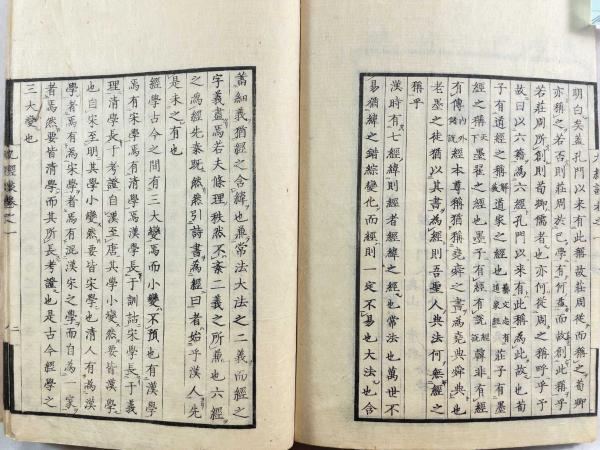 明白矣蓋孔門以來有此稱故莊周從而稱之荀卿
亦稱之若否則莊周於巳學有何益而故創此稱乎
若莊周所創則荀卿儒者也亦何從周之稱呼乎予
故曰以六籍為六經孔門以來有此稱為此故也荀
子有道經之稱解蔽道家之經也藝文志有道家經莊子有墨
經之稱天下墨翟之經也墨子有經有說經說韓非有經
有傳内外儲說經本尊稱猶稱堯舜之書為堯典舜典也
老墨之徒猶以其書為經則吾聖人典法何無經之
稱乎
漢時有七經緯則經者經緯之經也常法也萬世不
易猶緯之錯綜變化而經則一定不易也大法也含
蓄細義猶經之含緯也兼常法大法之二義而經之
字義盡焉若夫條理秩然不紊二義之所兼也六經
之為經先秦既然然引詩書為經曰者始乎漢人先
是未之有也
經學古今之間有三大變焉而小變不預也有漢學
焉有宋學焉有清學焉漢學長于訓詁宋學長于義
理清學長于考證自漢至唐其學小變然要皆漢學
也自宋至明其學小變然要皆宋學也清人有為漢
學者焉有為宋學者焉有混漢宋之學而自為一家
者焉然要皆清學而其所長考證也是古今經學之
三大變也
九經談卷之一 二